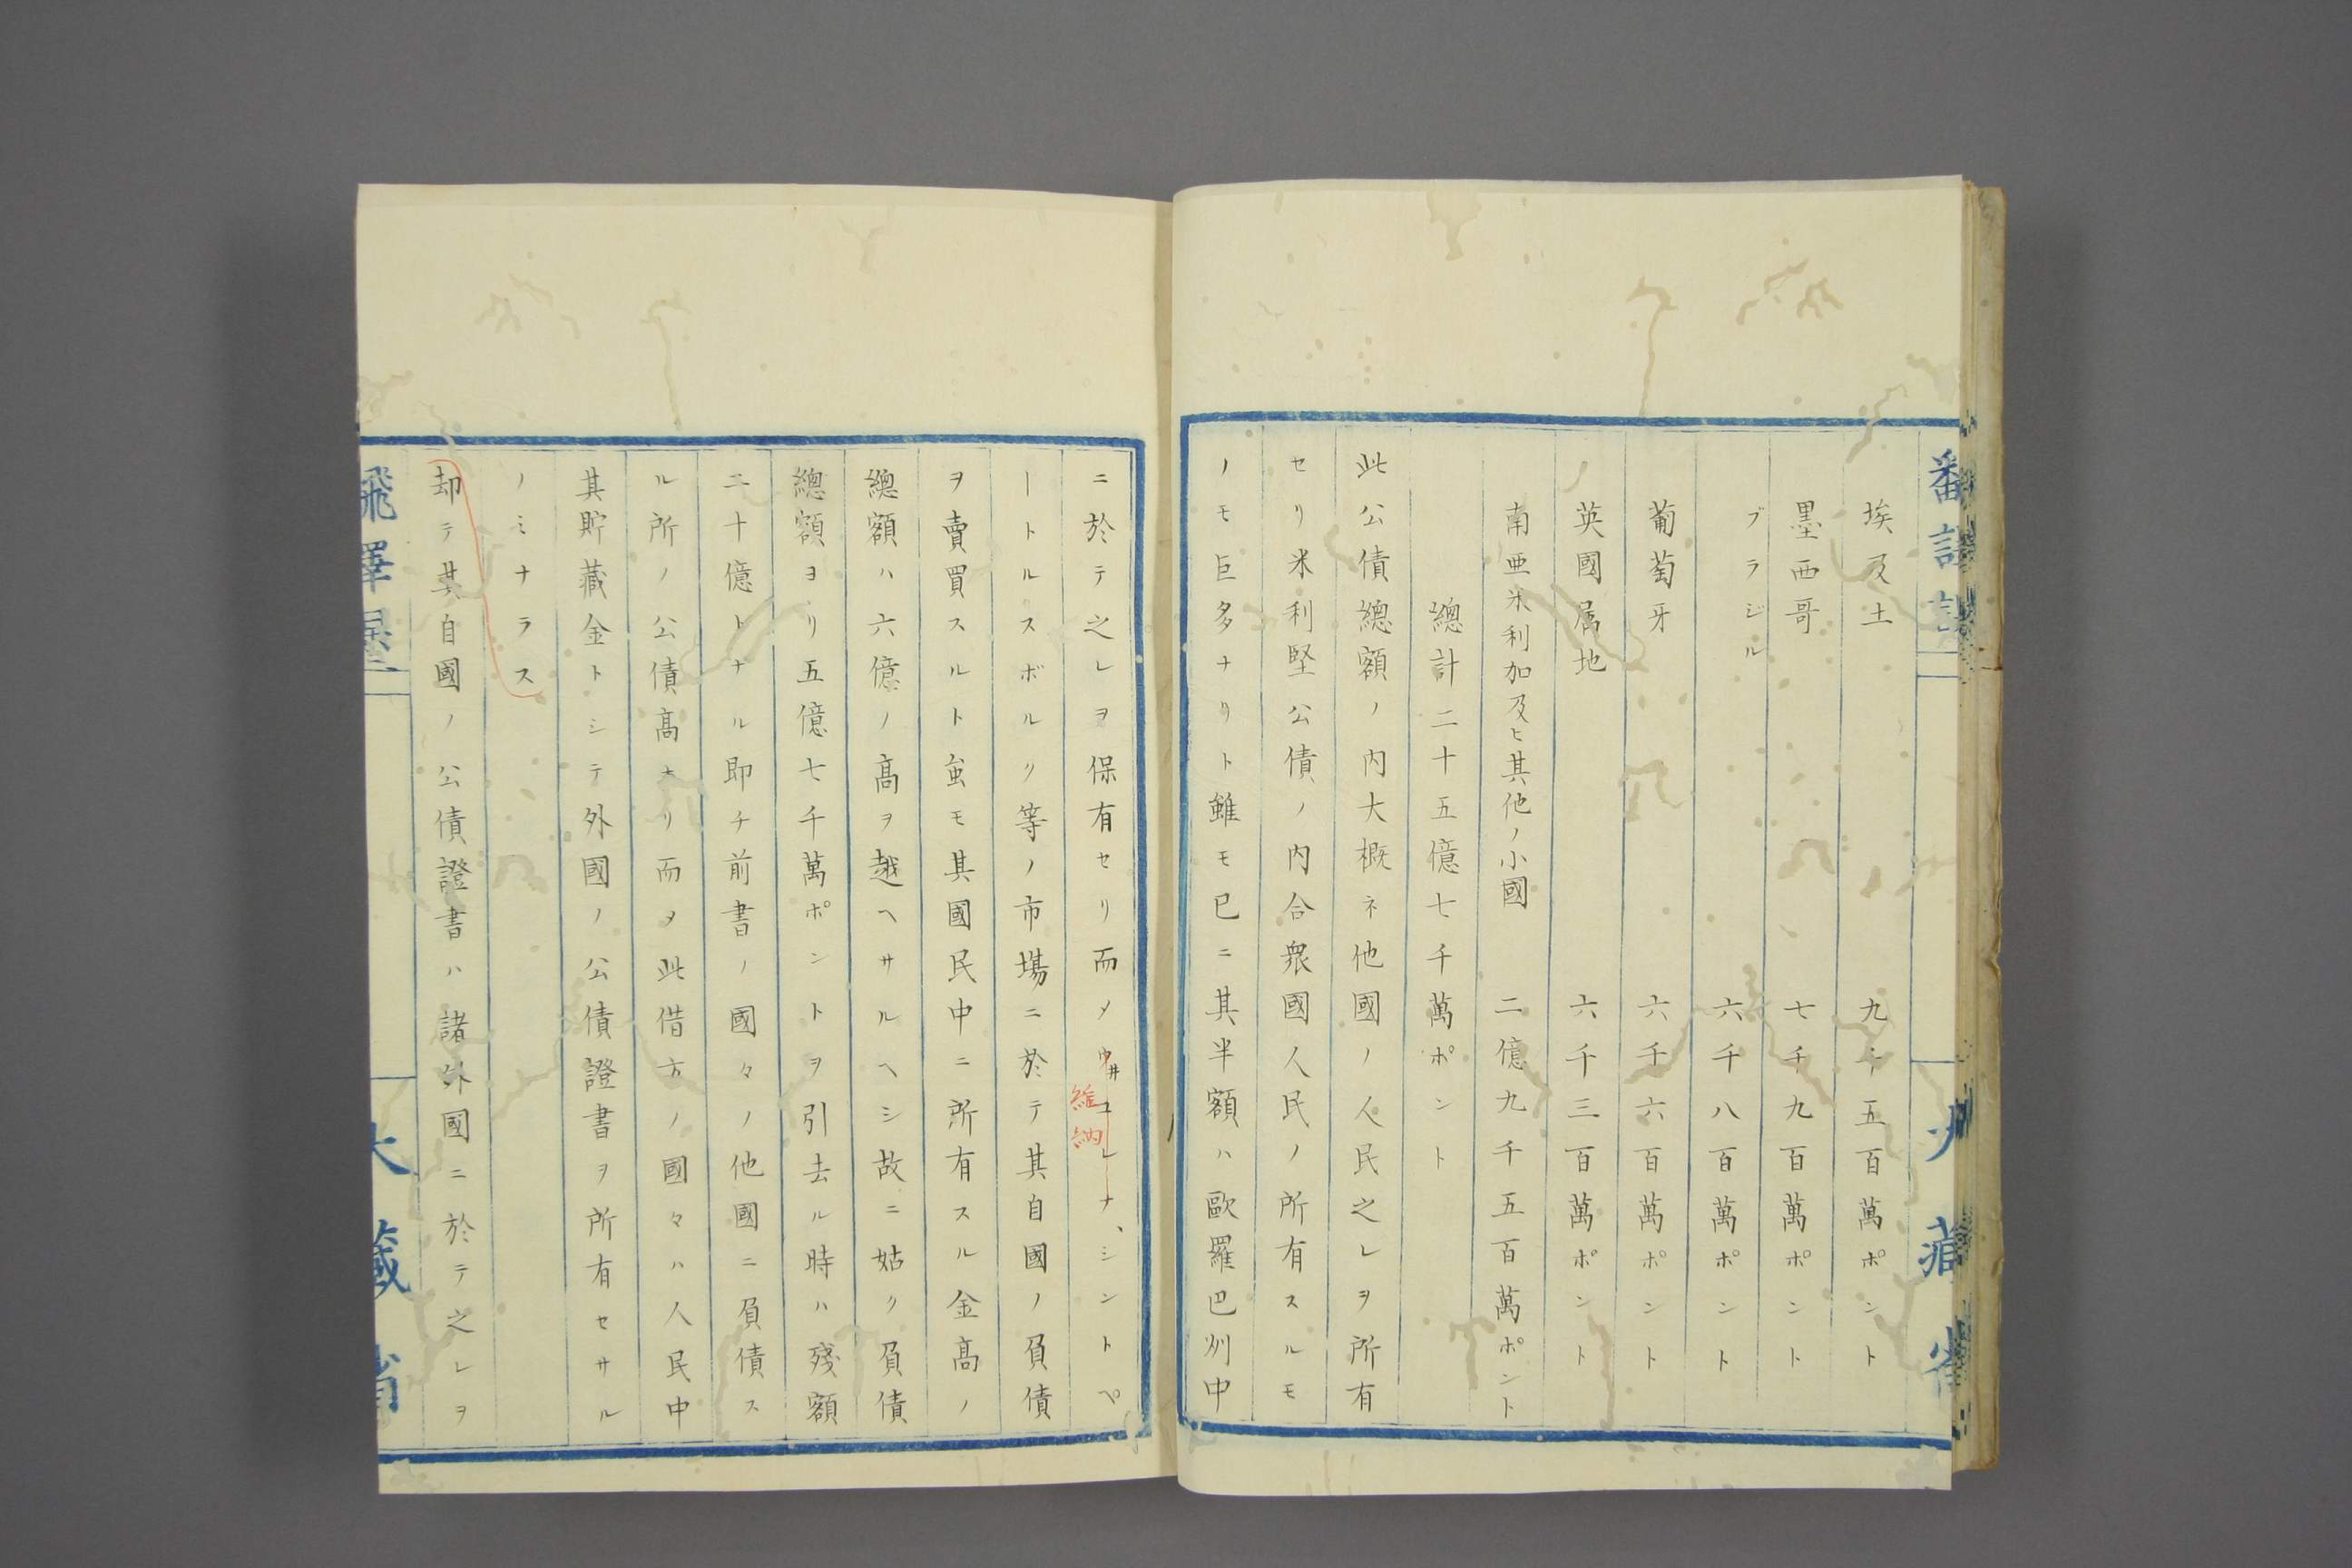 埃及土　九千五百萬ポント
墨西哥　七千九百萬ポント
ブラジル　六千八百萬ポント
葡萄牙　六千六百萬ポント
英國属地　六千三百萬ポント
南亜米利加及ヒ其他ノ小國　二億九千五百萬ポント
總計二十五億七千萬ポント
此公債總額ノ内大概ネ他國ノ人民之レヲ所有
セリ米利堅公債ノ内合衆國人民ノ所有スルモ
ノモ巨多ナリト雖モ已ニ其半額ハ歐羅巴州中
ニ於テ之レヲ保有セリ而メウ井ユーレナ、シントペ
維納
ートルスボルク等ノ市場ニ於テ其自國ノ負債
ヲ賣買スルト虽モ其國民中ニ所有スル金高ノ
總額ハ六億ノ高ヲ越ヘサルヘシ故ニ姑ク負債
總額ヨリ五億七千萬ポントヲ引去ル時ハ殘額
二十億トナル即チ前書ノ國々ノ他國ニ負債ス
ル所ノ公債高ナリ而メ此借方ノ國々ハ人民中
其貯藏金トシテ外國ノ公債證書ヲ所有セサル
ノミナラス
却テ其自國ノ公債證書ハ諸外國ニ於テ之レヲ
大藏省